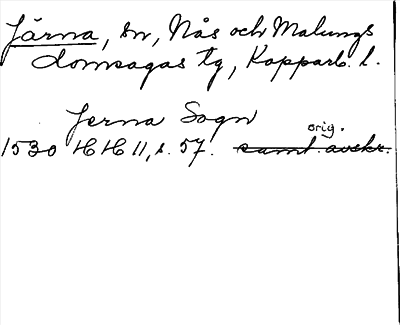 Järna, sn, Nås och Malungs
domsagas tg, Kopparb. l.
Jerna Sogn
orig.
1530 HH 11, s. 57. samt. avskr.